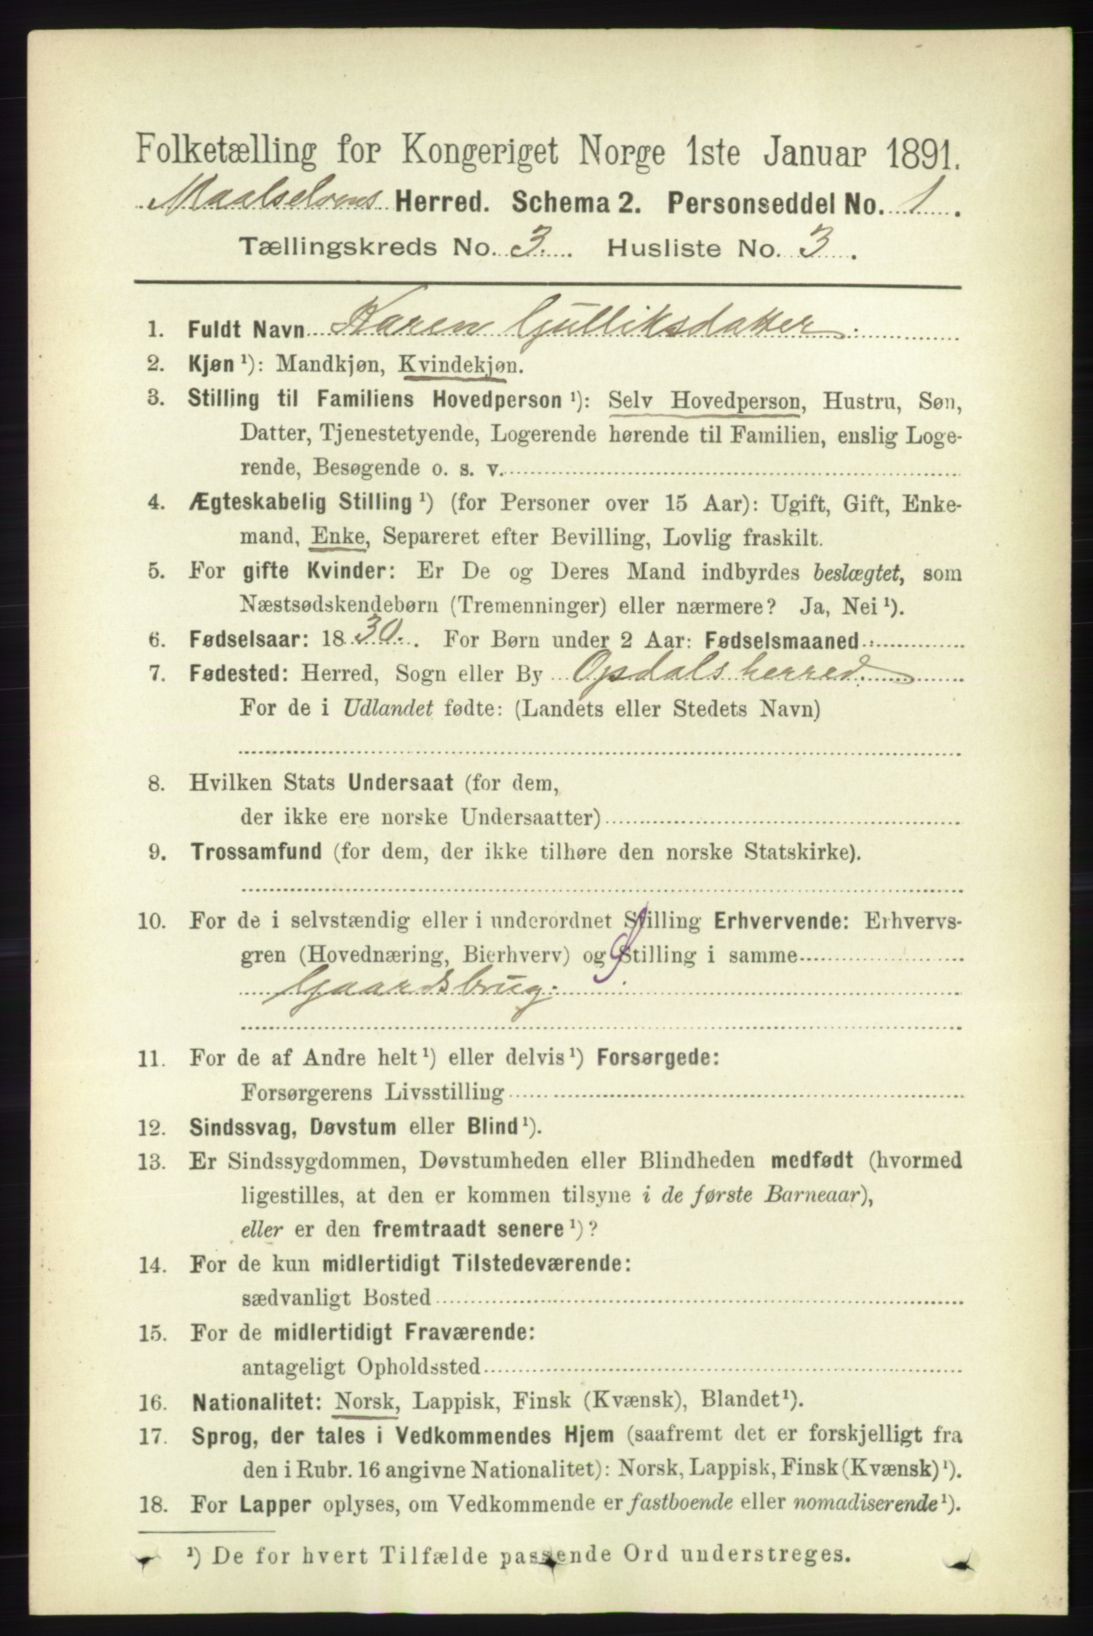 Folketælling for Kongeriget Norge 1ste Januar 1891.
Maalselvens Herred. Schema 2. Personseddel No. 1.
Tællingskreds No. 3. Husliste No. 3.
1. Fuldt Navn Karen Gulliksdatter.
2. Kjøn ¹): Mandkjøn, Kvindekjøn.
3. Stilling til Familiens Hovedperson ¹): Selv Hovedperson, Hustru, Søn,
Datter, Tjenestetyende, Logerende hørende til Familien, enslig Loge-
rende, Besøgende o. s. v.
4. Ægteskabelig Stilling ¹) (for Personer over 15 Aar): Ugift, Gift, Enke-
mand, Enke, Separeret efter Bevilling, Lovlig fraskilt.
5. For gifte Kvinder: Er De og Deres Mand indbyrdes beslægtet, som
Næstsødskendebørn (Tremenninger) eller nærmere? Ja, Nei ¹).
6. Fødselsaar: 1830. For Børn under 2 Aar: Fødselsmaaned
7. Fødested: Herred, Sogn eller By Opdals herred.
For de i Udlandet fødte: (Landets eller Stedets Navn)
8. Hvilken Stats Undersaat (for dem,
der ikke ere norske Undersaatter)
9. Trossamfund (for dem, der ikke tilhøre den norske Statskirke).
10. For de i selvstændig eller i underordnet Stilling Erhvervende: Erhvervs-
gren (Hovednæring, Bierhverv) og Stilling i samme
Gaardsbrug.
11. For de af Andre helt ¹) eller delvis ¹) Forsørgede:
Forsørgerens Livsstilling
12. Sindssvag, Døvstum eller Blind ¹).
13. Er Sindssygdommen, Døvstumheden eller Blindheden medfødt (hvormed
ligestilles, at den er kommen tilsyne i de første Barneaar),
eller er den fremtraadt senere ¹)?
14. For de kun midlertidigt Tilstedeværende:
sædvanligt Bosted
15. For de midlertidigt Fraværende:
antageligt Opholdssted
16. Nationalitet: Norsk, Lappisk, Finsk (Kvænsk), Blandet ¹).
17. Sprog, der tales i Vedkommendes Hjem (saafremt det er forskjelligt fra
den i Rubr. 16 angivne Nationalitet): Norsk, Lappisk, Finsk (Kvænsk) ¹).
18. For Lapper oplyses, om Vedkommende er fastboende eller nomadiserende ¹).
¹) De for hvert Tilfælde passende Ord understreges.